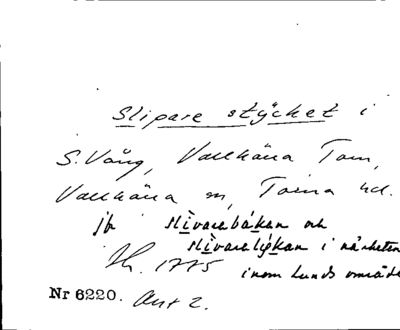 Slipare stycket i
S. Vång, Vallkärra Torn,
Vallkärra sn, Torna hd.
jfr slivarebákan och
slivarelýkan i närheten
1775 inom Lunds område
Nr 6220. Ant 2.